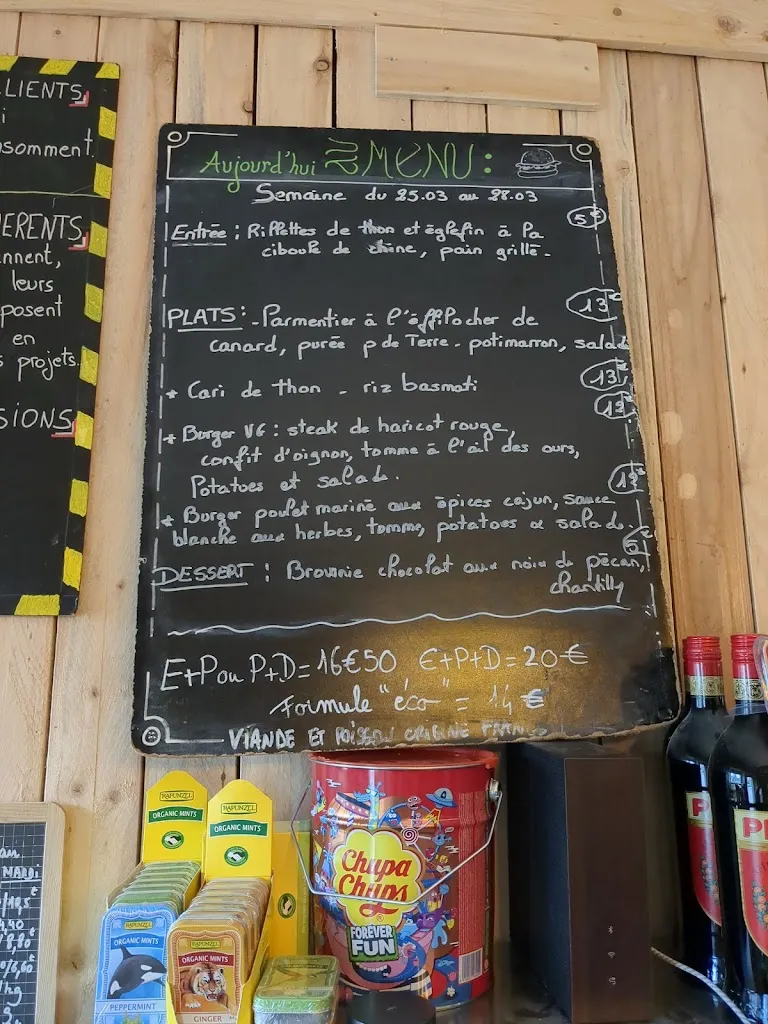 LIENTS
i
nsomment.
ERENTS
nnent,
leurs
posent
en
s projets.
SIONS
Aujourd'hui MENU :
Semaine du 25.03 au 28.03
5€
Entrée : Rillettes de thon et églefin à la
ciboule de chine, pain grillé.
13€
PLATS : - Parmentier à l'éffilocher de
canard, purée p de Terre - potimarron, salad
13€
* Cari de thon - riz basmati
* Burger VG : steak de haricot rouge,
confit d'oignon, tomme à l'ail des ours,
Potatoes et salade.
* Burger poulet mariné aux épices cajun, sauce
blanche aux herbes, tomme, potatoes & salade.
5€
DESSERT : Brownie chocolat aux noix de pécan,
chantilly
E+P ou P+D = 16€50 E+P+D = 20€
Formule "éco" = 14€
VIANDE ET POISSON ORIGINE FRANCE
MARDI
RAPUNZEL
ORGANIC MINTS
RAPUNZEL
ORGANIC MINTS
RAPUNZEL
ORGANIC MINTS
PEPPERMINT
RAPUNZEL
ORGANIC MINTS
GINGER
Chupa
Chups
FOREVER
FUN
P
PI